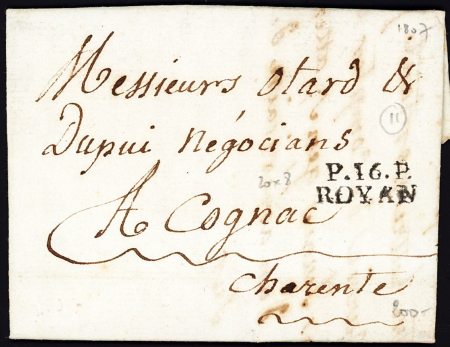 1807
Messieurs Otard &
Dupui négócians
11
P.16.P.
ROYAN
20x8
A Cognac
Charente
200-